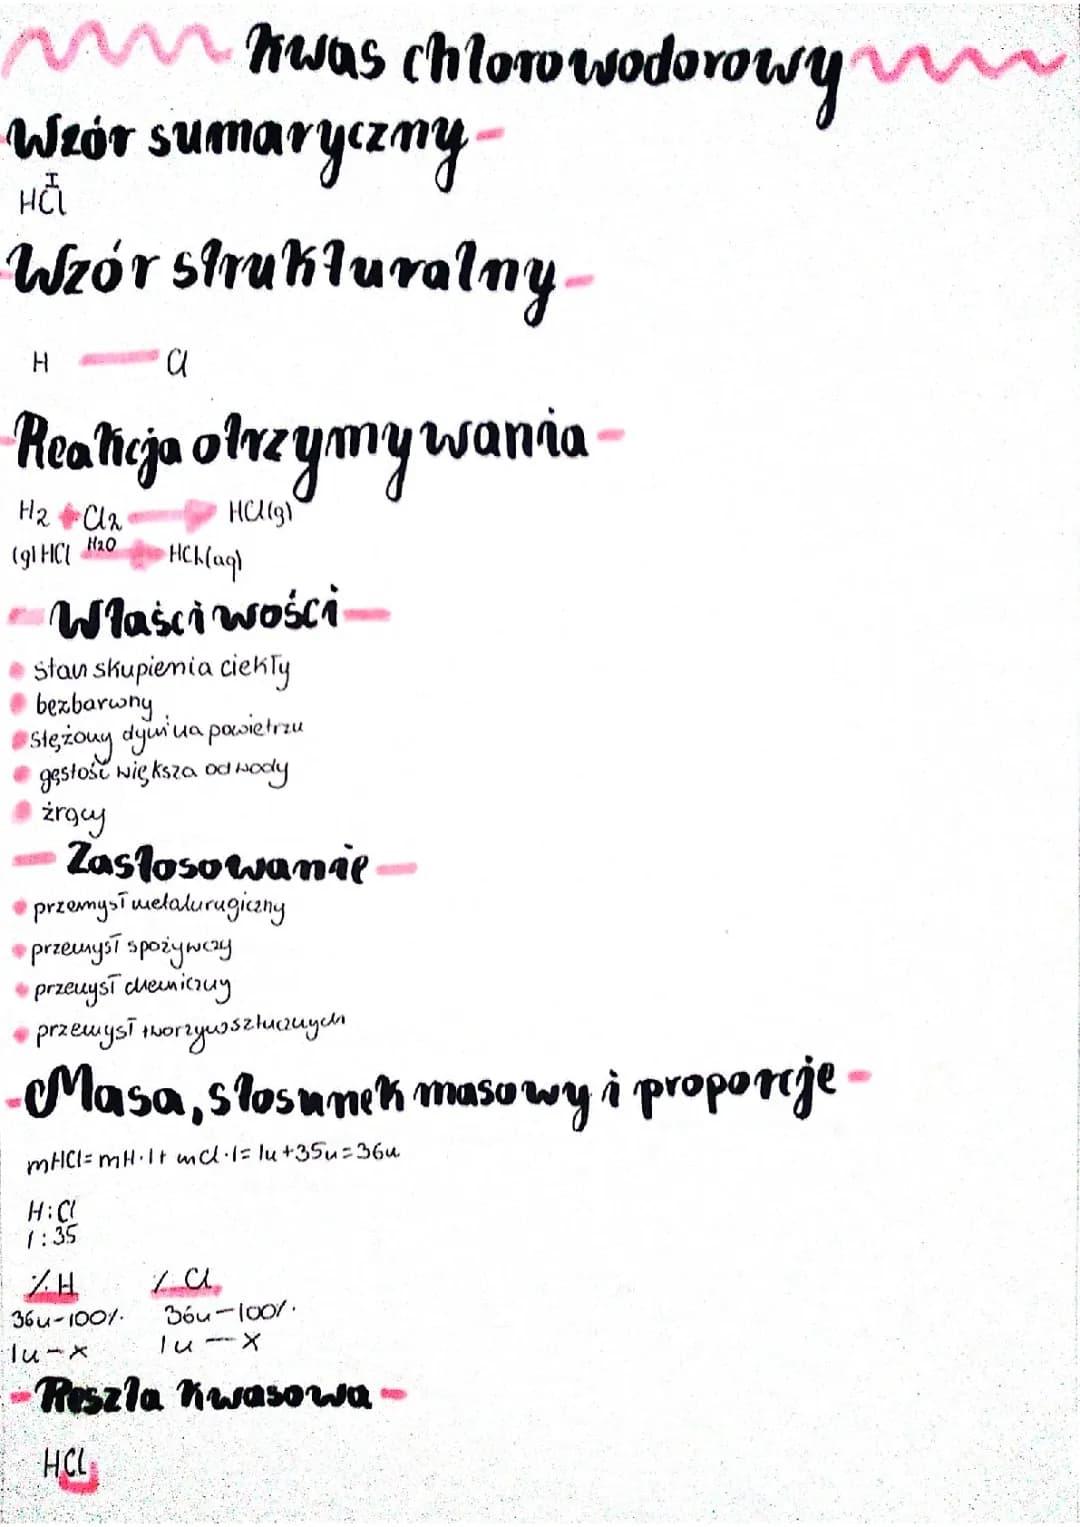 Kwas chlorowodorowy
Wzór sumaryczny
I
HCl
Wzór strukturalny
H — Cl
Reakcja otrzymywania
H2 + Cl2 → HCl(g)
(g) HCl H2O → HCl(aq)
Właściwości
stan skupienia ciekły
bezbarwny
stężony dymi na powietrzu
gęstość większa od wody
żrący
Zastosowanie
przemysł metalurugiczny
przemysł spożywczy
przemysł chemiczny
przemysł tworzyw sztucznych
Masa, stosunek masowy i proporcje
mHCl = mH·1+ mCl·1= 1u+35u=36u
H:Cl
1:35
%H % Cl
36u-100%. 36u-100%.
1u-x 1u — x
Reszta kwasowa
HCl